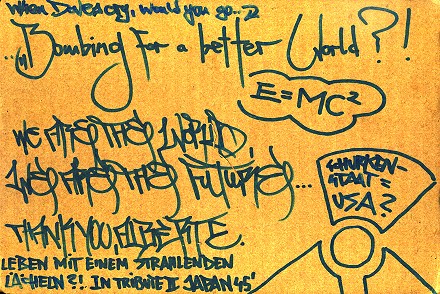 When Doves cry, would you go..2
..„Bombing for a better World?!
E=MC²
WE ARE THE WORLD,
WE ARE THE FUTURE...
SCHURKEN-
STAAT=
USA?
THANK YOU, ALBERT E.
LEBEN MIT EINEM STRAHLENDEN
LÄCHELN?! IN TRIBUTE II JAPAN 45'